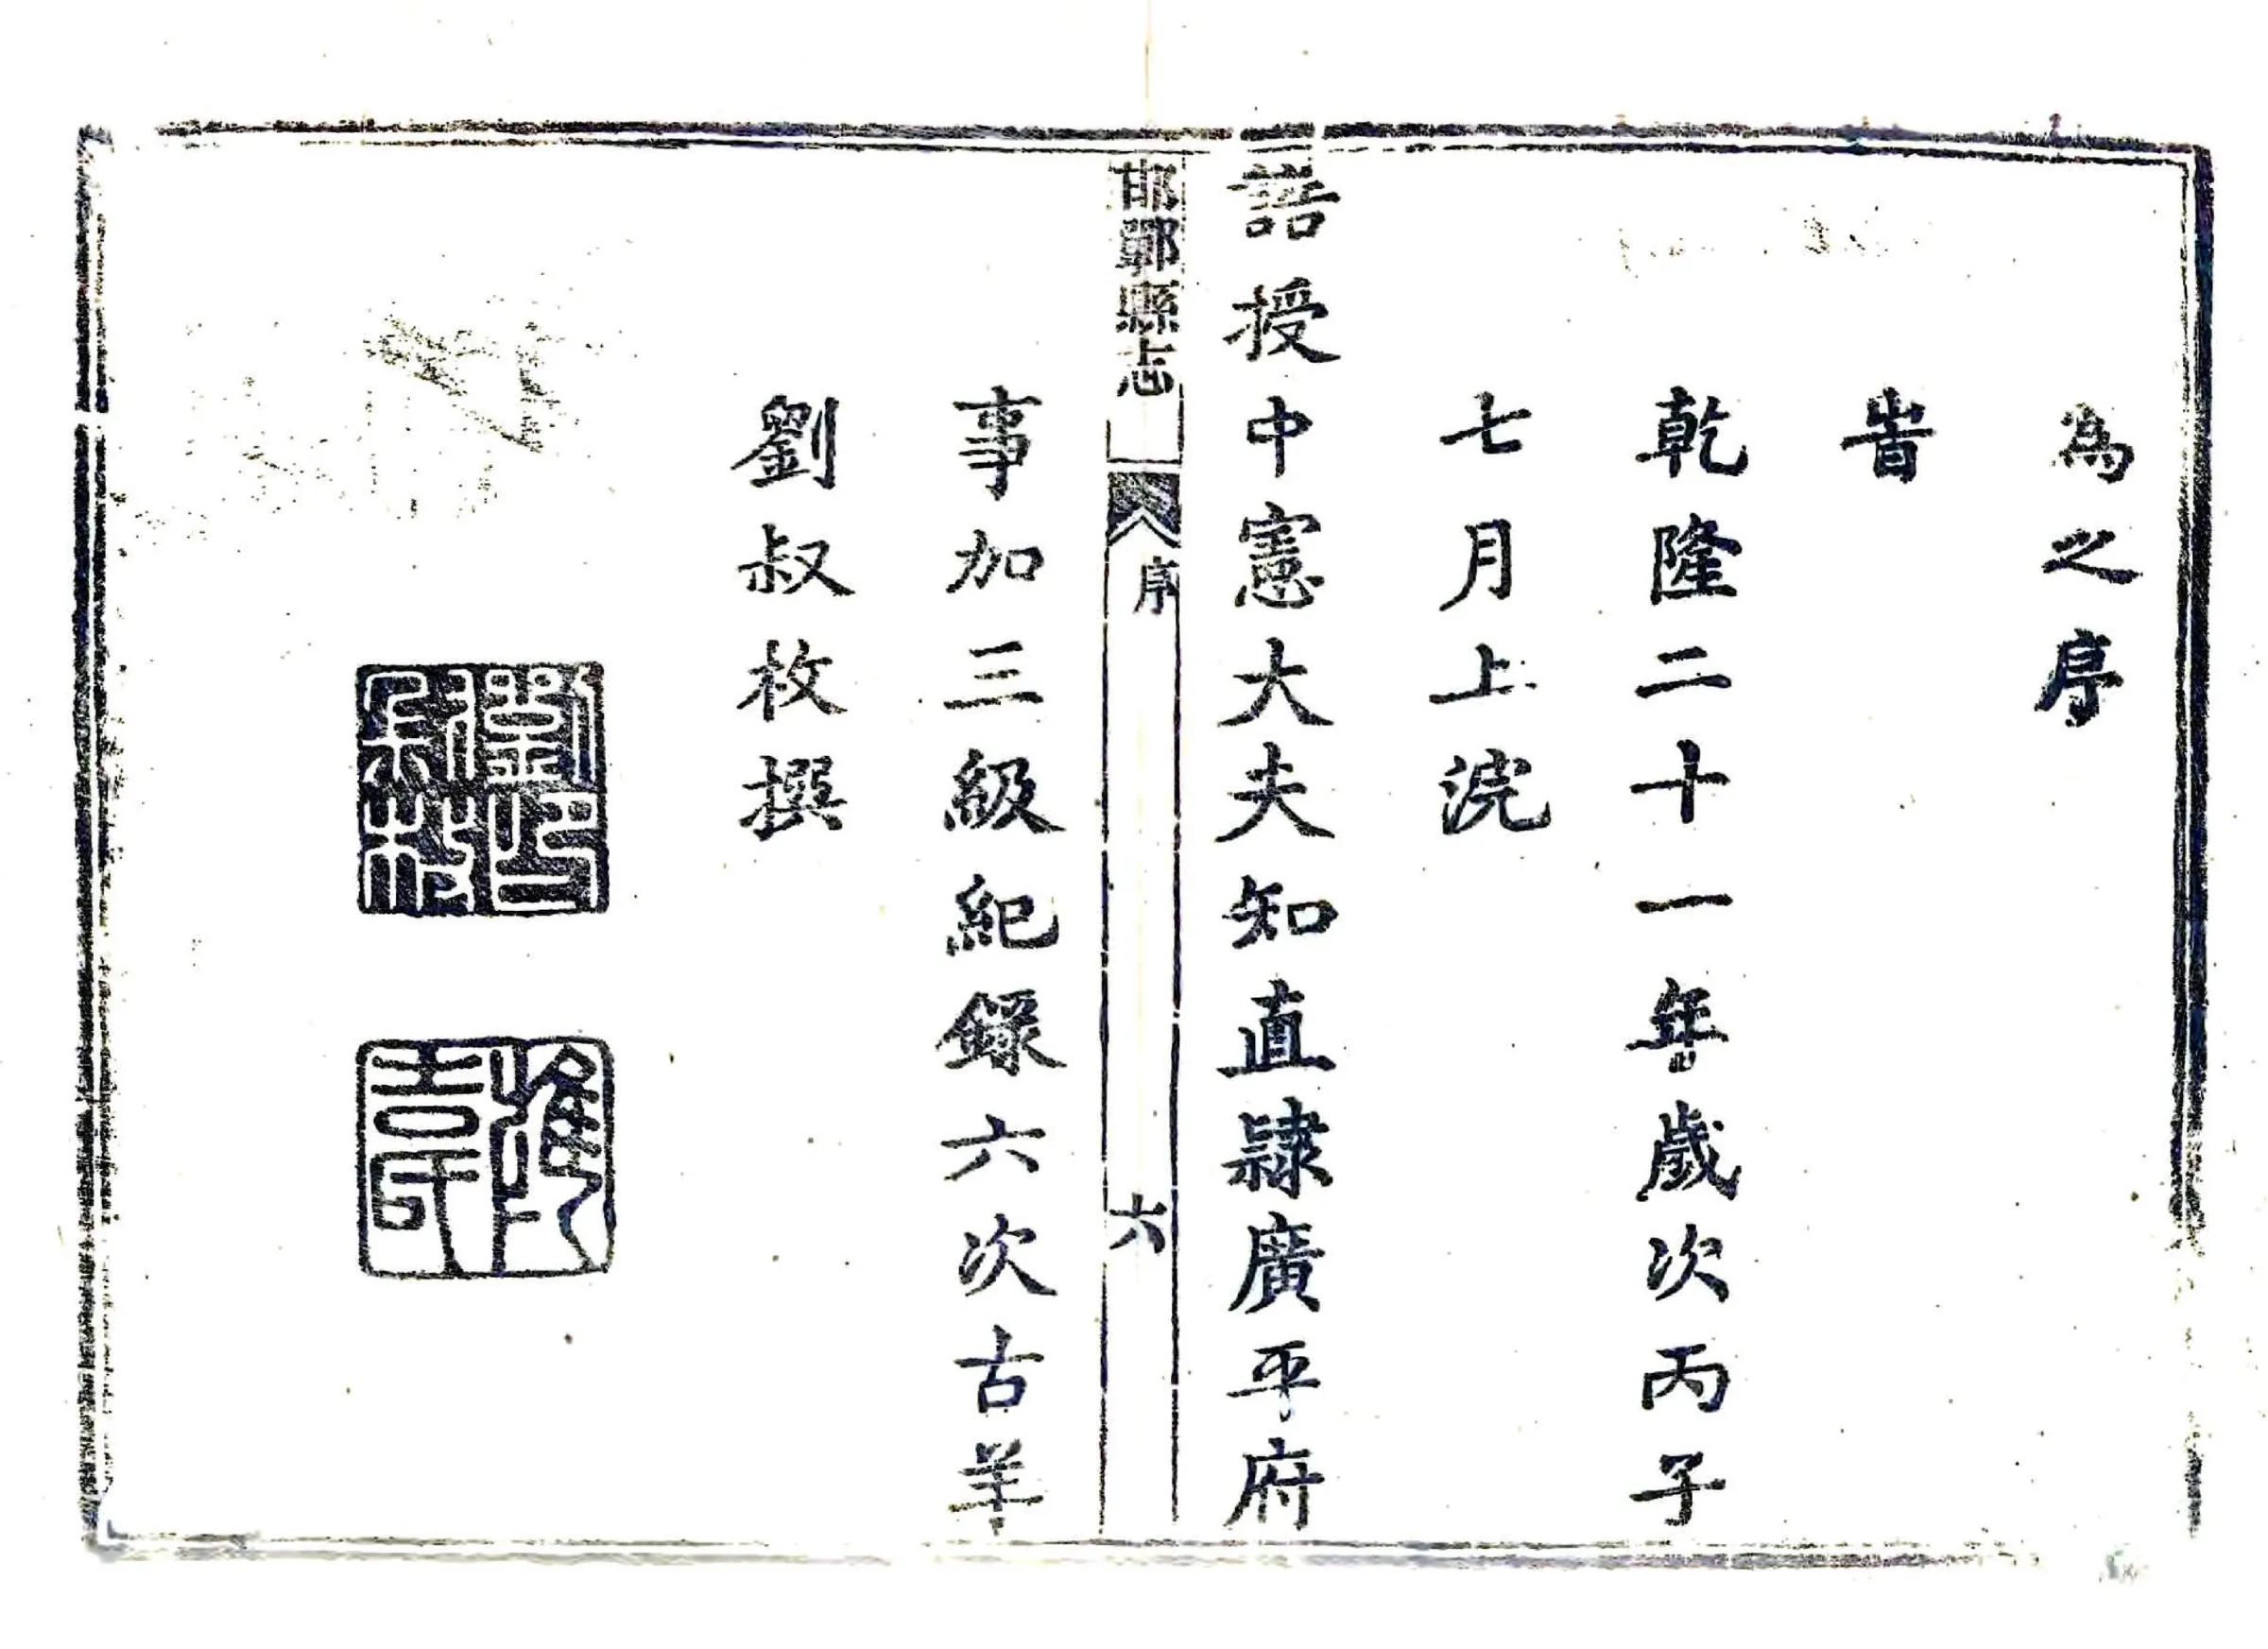 為之序
旹
乾隆二十一年歲次丙子
七月上浣
誥授中憲大夫知直隸廣平府
邯鄲縣志 序 六
事加三級紀錄六次古羊
劉叔枚撰
劉印叔枚